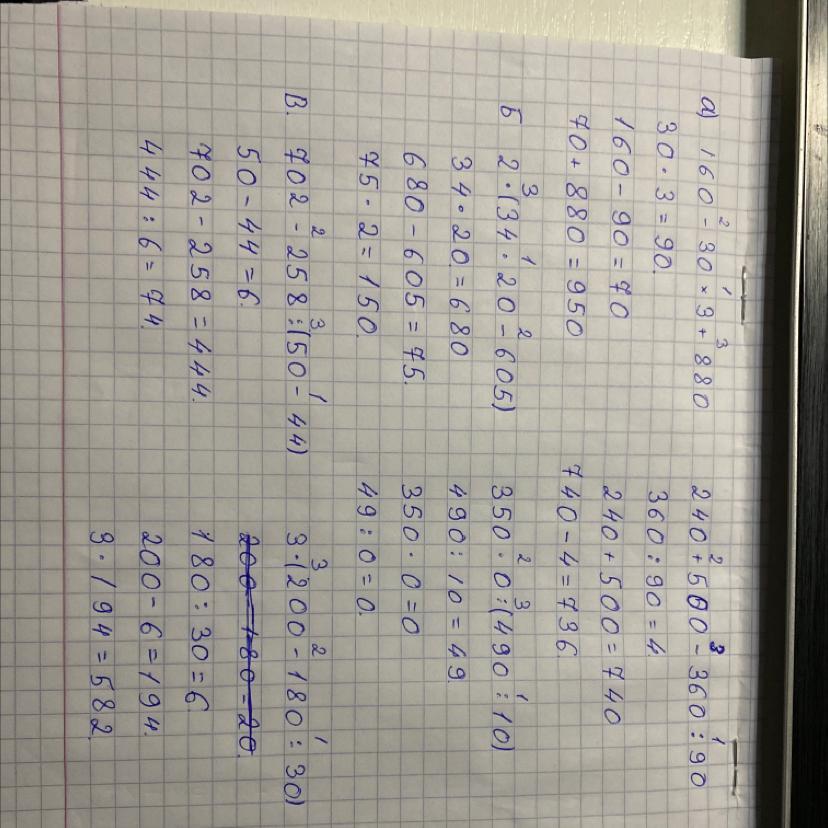 а) 160 - 30 × 3 + 880
2 1 3
30 · 3 = 90.
160 - 90 = 70
70 + 880 = 950
Б 2 · (34 · 20 - 605)
3 1 2
34 · 20 = 680
680 - 605 = 75.
75 · 2 = 150.
В. 702 - 258 : (50 - 44)
2 3 1
50 - 44 = 6.
702 - 258 = 444.
444 : 6 = 74.
240 + 500 - 360 : 90
2 3 1
360 : 90 = 4.
240 + 500 = 740
740 - 4 = 736.
350 · 0 : (490 : 10)
2 3 1
490 : 10 = 49.
350 · 0 = 0
49 : 0 = 0.
3 · (200 - 180 : 30)
3 2 1
200 - 180 = 20.
180 : 30 = 6.
200 - 6 = 194.
3 · 194 = 582.